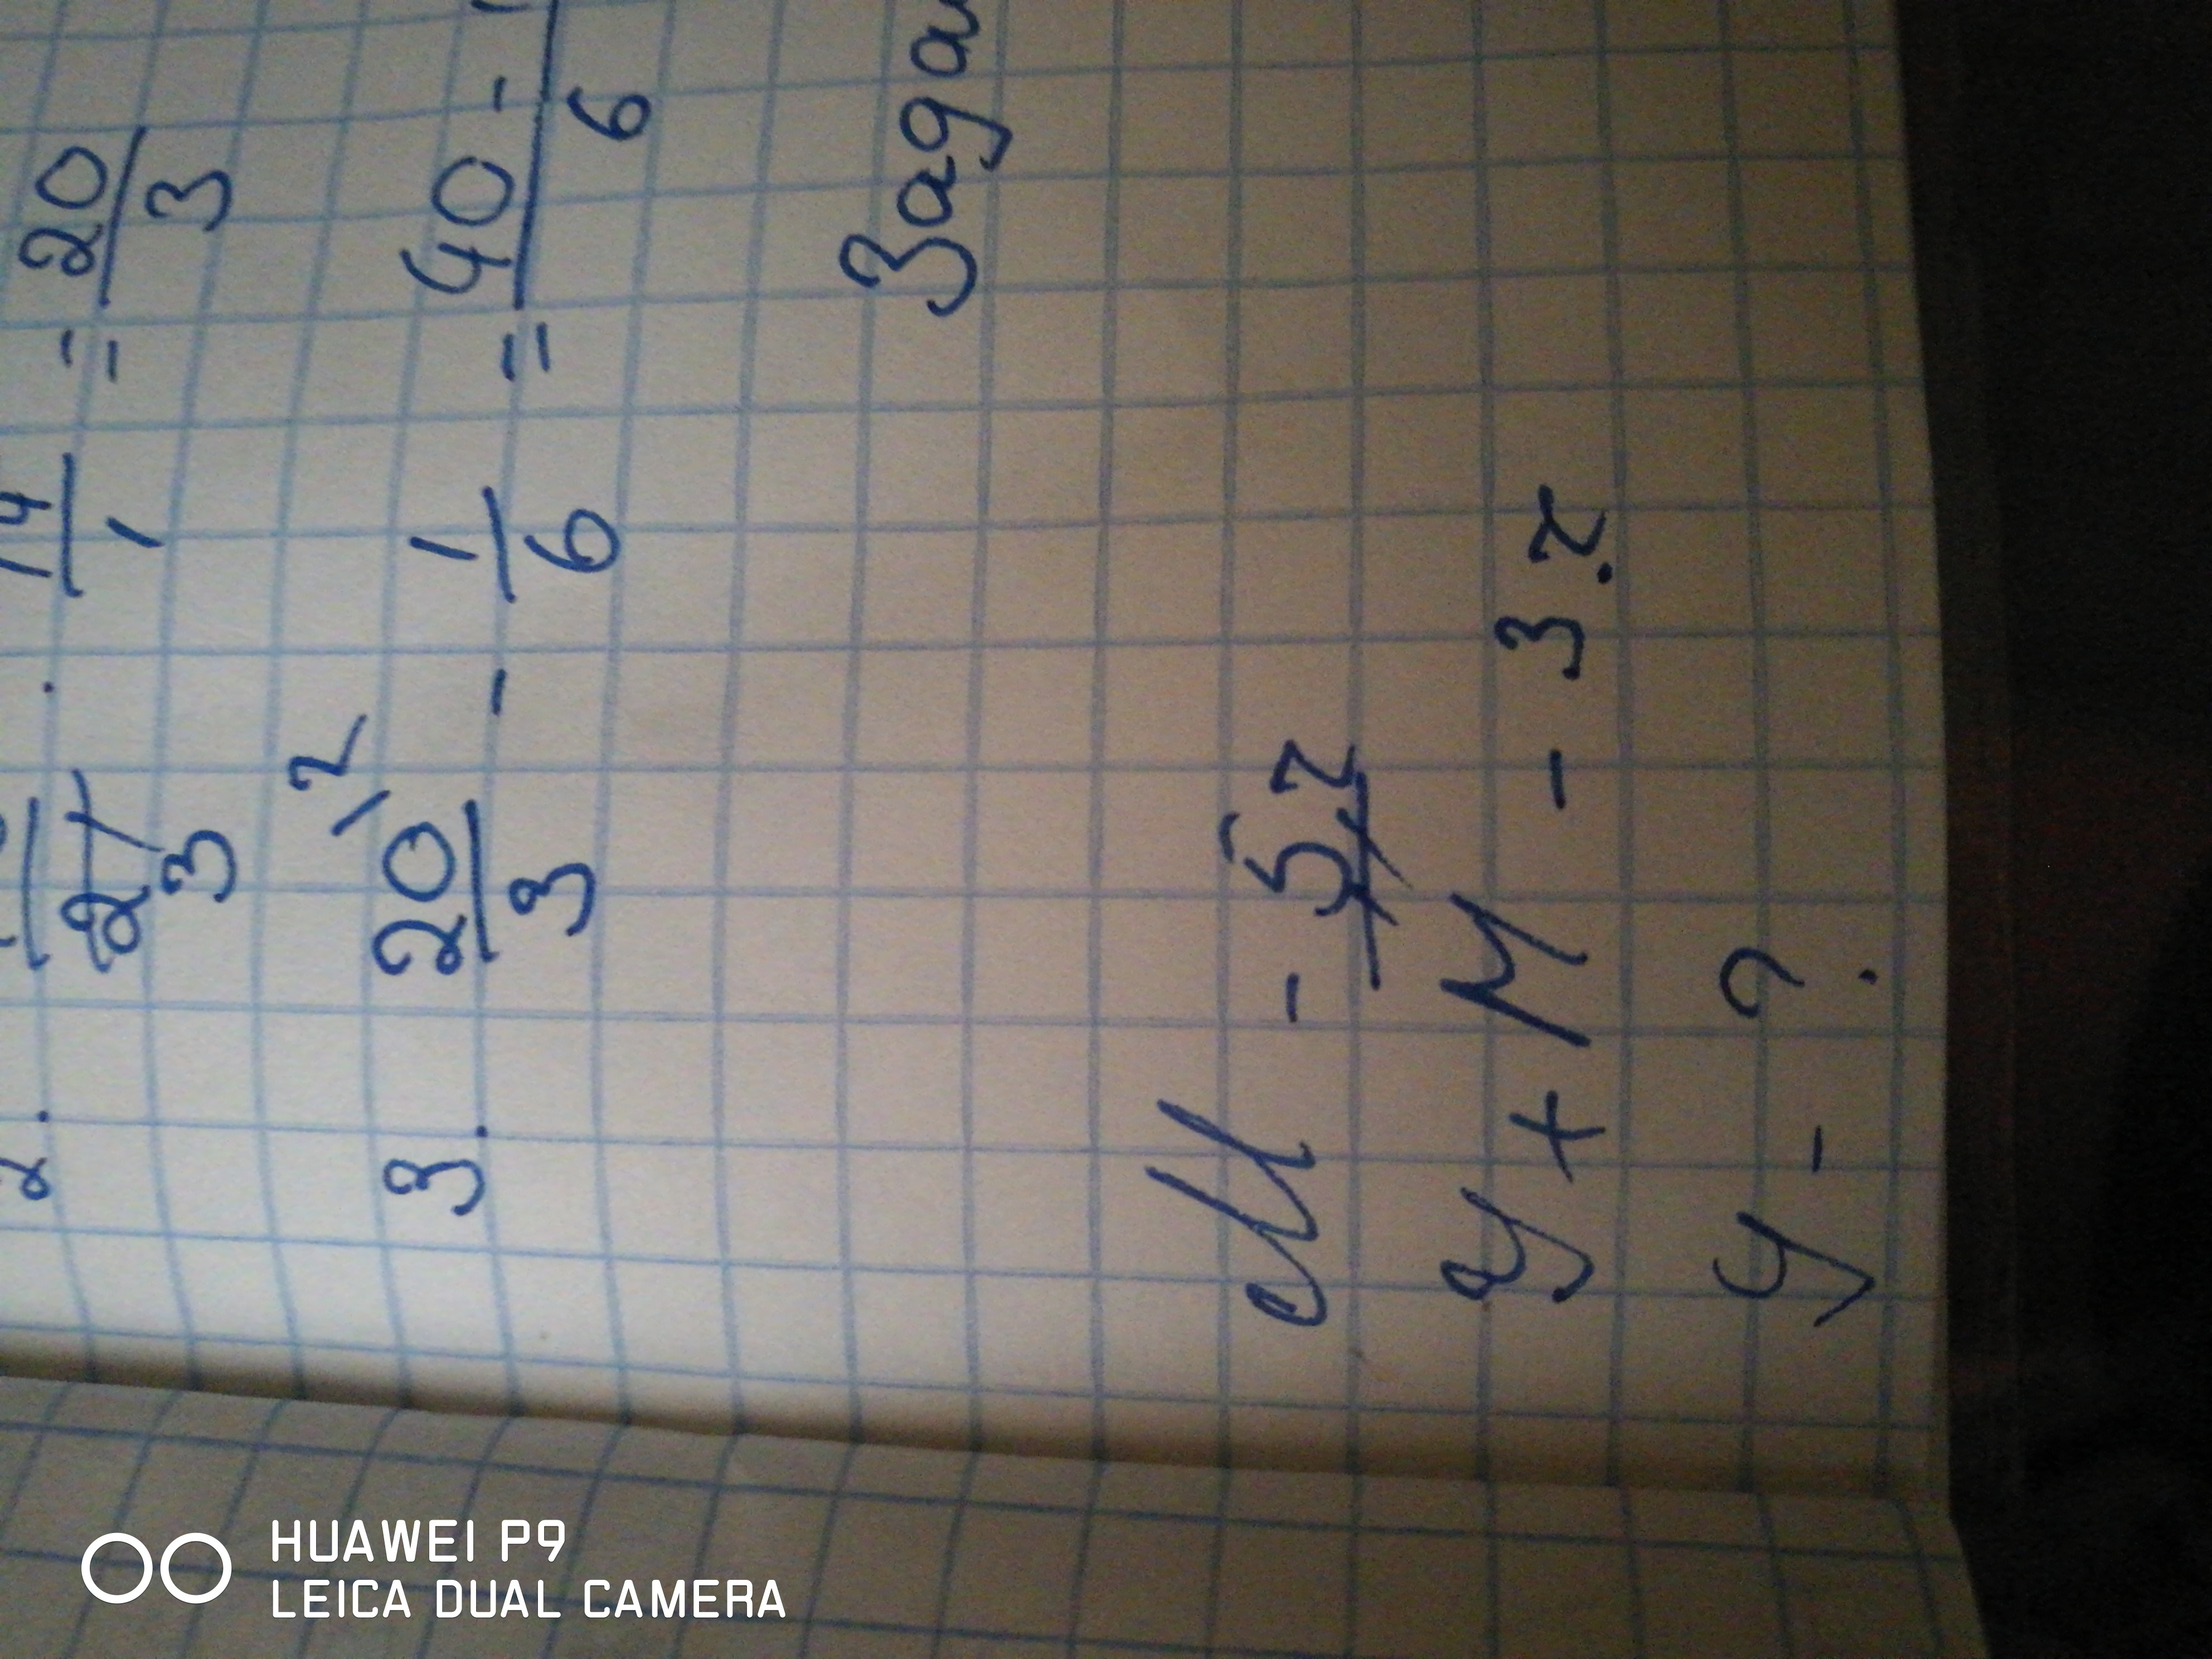 2. · 14/1 = 20/3
21
3
3. 20/3 \2 - 1/6 = 40 -
6
Зада
М - 5 г
У + М - 3 г.
У - ?
HUAWEI P9
LEICA DUAL CAMERA